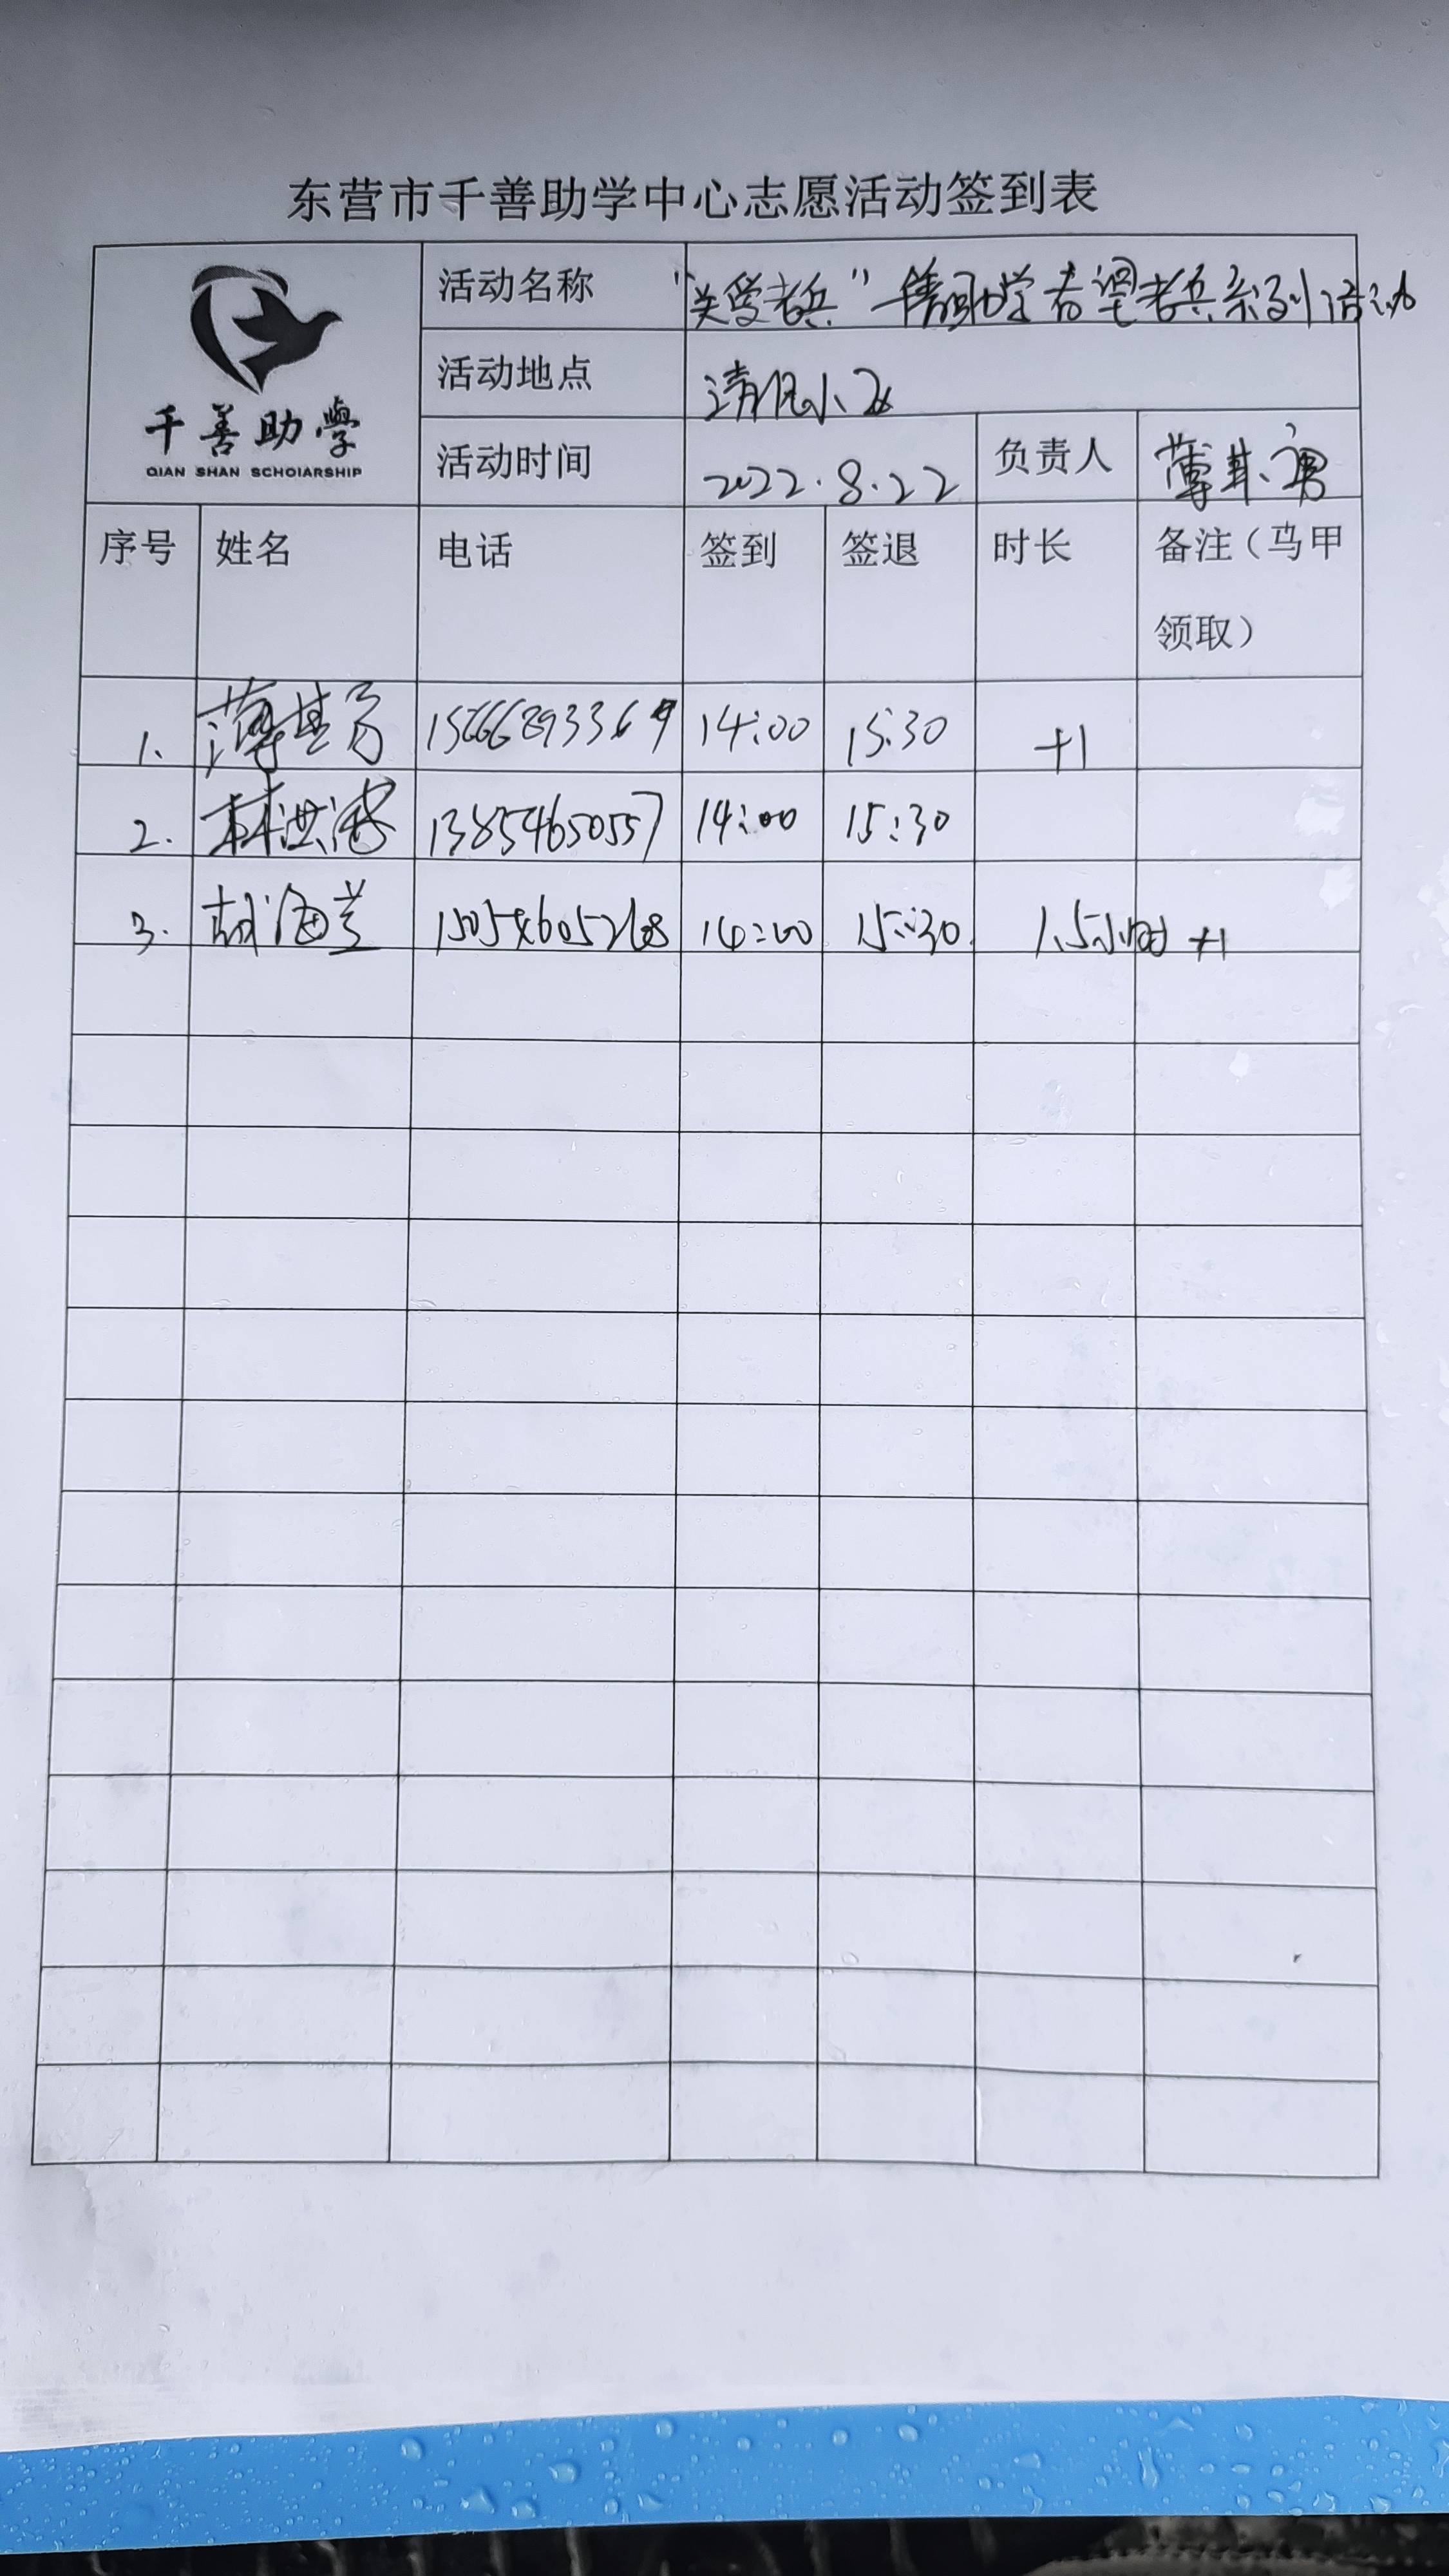 东营市千善助学中心志愿活动签到表
千善助學
QIAN SHAN SCHOIARSHIP
活动名称 “关爱老兵”千善助学看望老兵系列活动
活动地点 清风小区
活动时间 2022.8.22 负责人 薄其勇
序号 姓名 电话 签到 签退 时长 备注（马甲
领取）
1. 薄其勇 15666293369 14:00 15:30 +1
2. 林洪 13854650557 14:00 15:30
3. 胡海兰 15054605268 14:00 15:30 1.5小时 +1